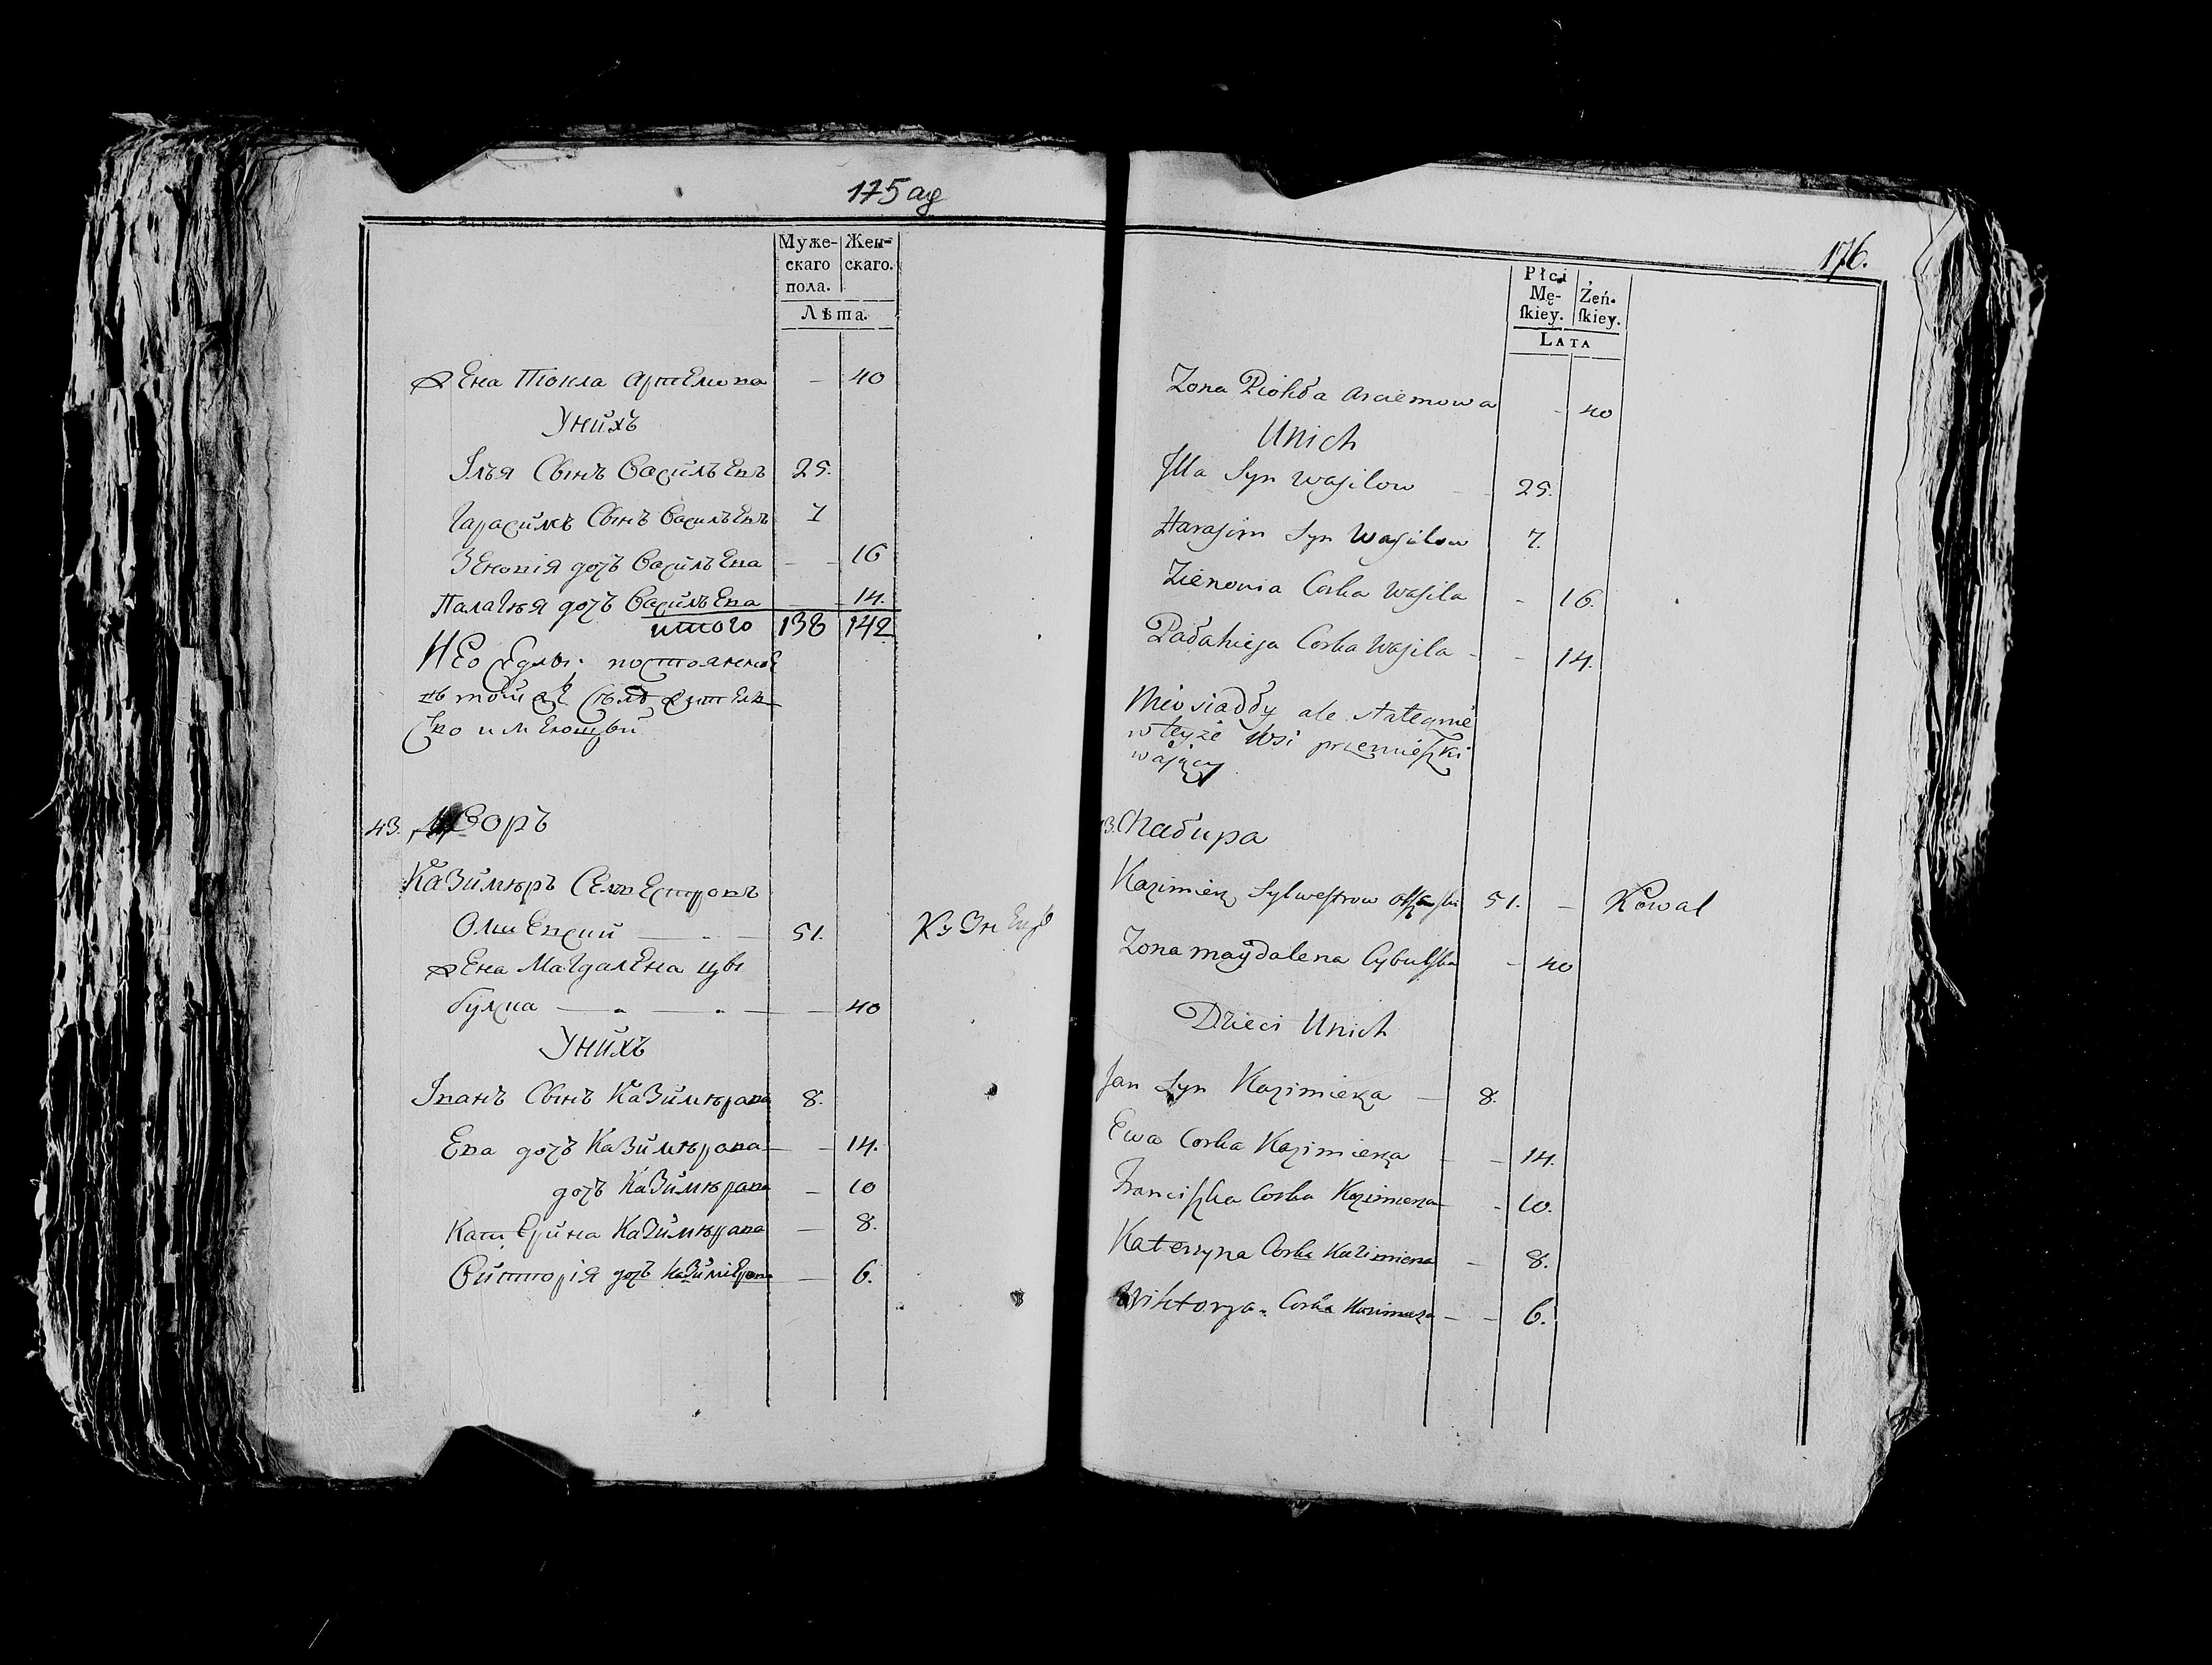 175 ад
Муже-
скаго
пола.
Жен-
скаго.
Лѣта.
Жена Тiокла Артемова — 40
У нихъ
Iлья Сынъ Васильевъ 25.
Гарасимъ Сынъ Васильевъ 7
Зеновiя дочъ Васильева — — 16
Палагѣя дочъ Васильева — 14.
итого 138 142
Неоседлы: постоянное
въ той же Селѣ жител
ство имеющыи
43. Дворъ
Казимѣръ Селвестровъ
Олшевский — 51. Кузнецъ
Жена Магдалена Цы
булска — — — 40
У нихъ
Iванъ Сынъ Казимѣрава 8.
Ева дочъ Казимѣрава — — 14.
дочъ Казимѣрава — 10
Катерина Казимѣрава — 8.
Викторiя дочъ Казимiерава — 6.
176.
Płci
Mę-
ſkiey.
Żeń-
ſkiey.
LATA
Zona Piokła Arciemowa - 40
Unich
Jlla Syn Wasilow - - 25.
Harasim Syn Wasilow 7.
Zienowia Corka Wasila - 16.
Pałahieja Corka Wasila - - 14.
Nieosiadły ale statecznie
w teyże Wsi przemieszki
wający
43. Chałupa
Kazimierz Sylwestrow 51. — Kowal
Zona Magdalena Cybulska - 40
Dzieci Unich
Jan Syn Kazimierza — 8.
Ewa Corka Kazimierza - - 14.
Franciszka Corka Kazimierza - 10.
Katerzyna Corka Kazimierza - 8.
Wiktorya Corka Kazimierza - - 6.